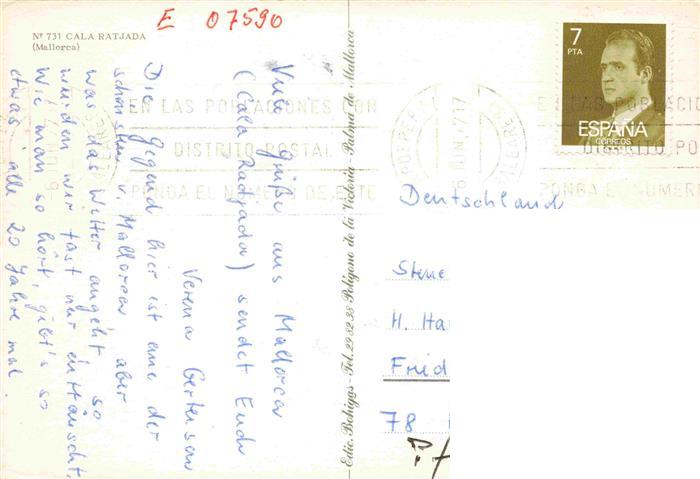 E 07590
Nº 731 CALA RATJADA
(Mallorca)
Viele Grüße aus Mallorca
(Cala Ratjada) sendet Euch
Verena
Die Gegend hier ist eine der
schönsten v. Mallorca, aber
was das Wetter angeht, so
wurden wir fast nur enttäuscht.
Wie man so hört, gibt's so
etwas alle 20 Jahre mal.
Edic. Bohigas - Tel. 29 82 35 Polígono de la Victoria - Palma de Mallorca
7
PTA
ESPAÑA
CORREOS
EN LAS POBLACIONES CON
DISTRITO POSTAL
PONGA EL NUMERO DE ESTE
EN LAS POBLACIO
DISTRITO PO
PONGA EL NUMER
Deutschland
Stene
H. Ha
Frid
78